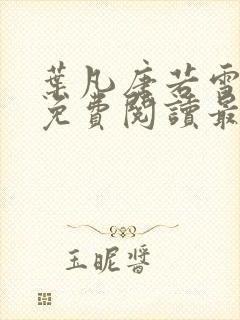 葉凡唐若雪
免費閱讀最
玉昵醬